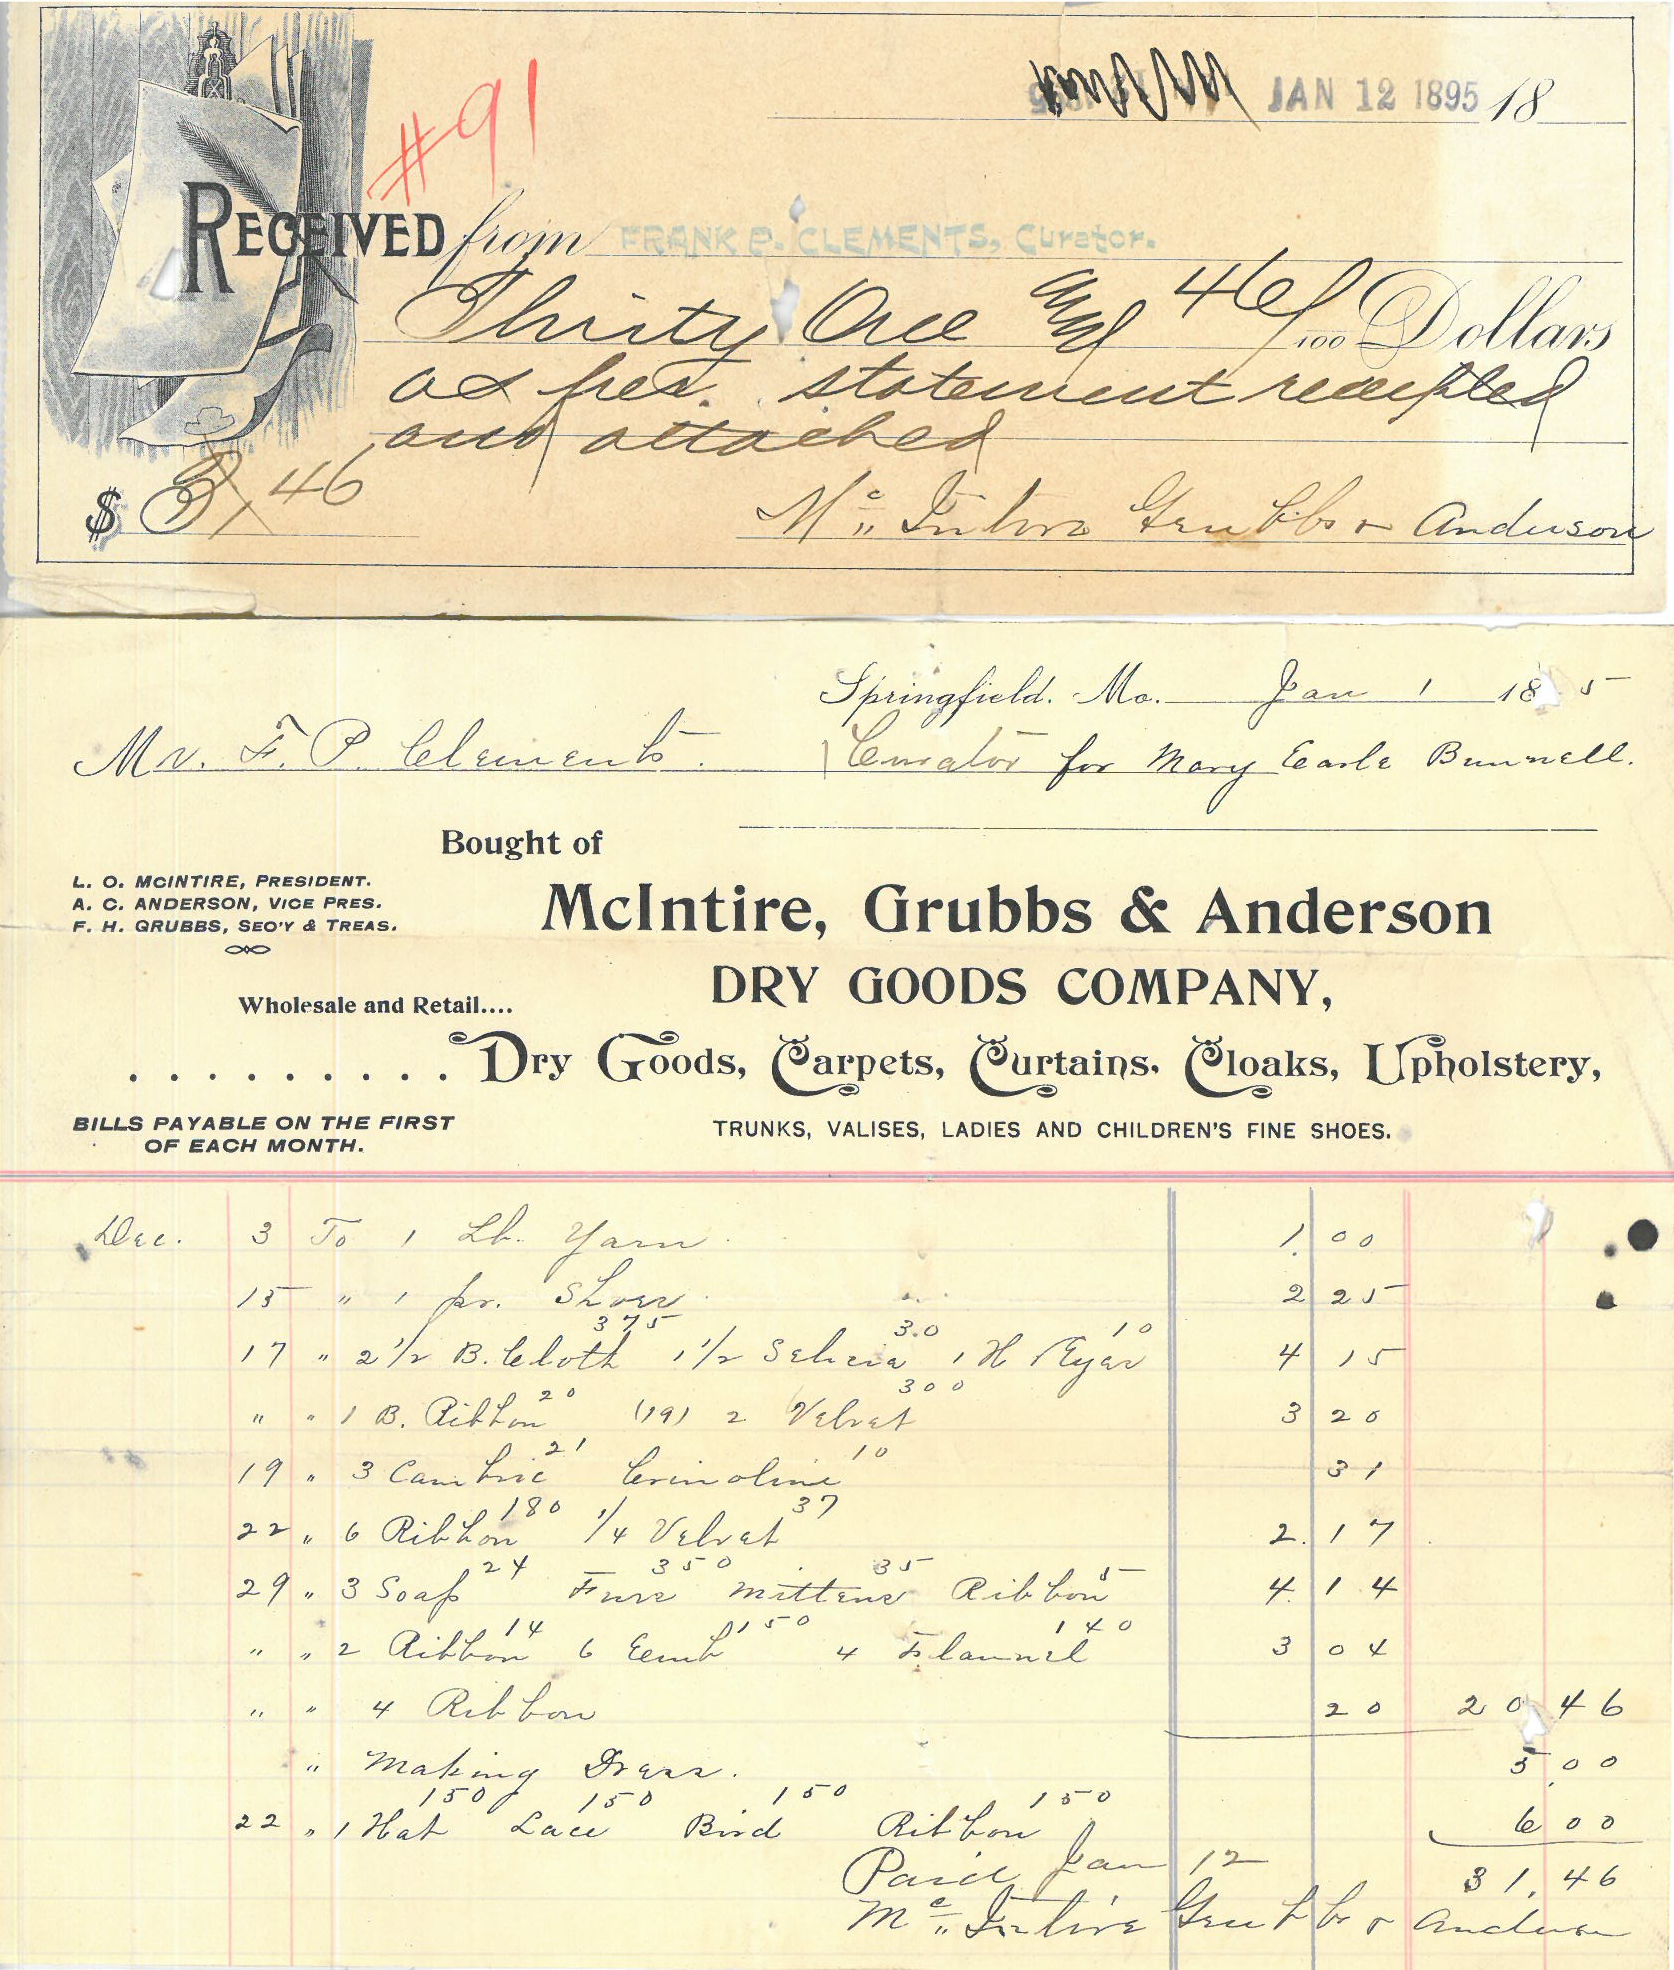 JAN 12 1895 18
#91
RECEIVED from FRANK P. CLEMENTS, Curator.
Thirty One and 46/100 Dollars
as per. statement receipted
and attached
$ 31.46
Mc Intire Grubbs & Anderson
Springfield. Mo. Jan 1 18 5
Mr. F. P. Clements. Curator for Mary Earle Bunnell.
Bought of
L. O. MCINTIRE, PRESIDENT.
A. C. ANDERSON, VICE PRES.
F. H. GRUBBS, SEC'Y & TREAS.
McIntire, Grubbs & Anderson
DRY GOODS COMPANY,
Wholesale and Retail....
. . . . . . . . . . Dry Goods, Carpets, Curtains. Cloaks, Upholstery,
BILLS PAYABLE ON THE FIRST
OF EACH MONTH.
TRUNKS, VALISES, LADIES AND CHILDREN'S FINE SHOES.
Dec. 3 To 1 Lb. Yarn 1.00
15 " 1 pr. Shoes 2 25
375 30 10
17 " 2 1/2 B. Cloth 1 1/2 Selicia 1 H Eyes 4 15
20 300
" " 1 B. Ribbon (19) 2 Velvet 3 20
21 10
19 " 3 Cambric Crinoline 31
180 37
22 " 6 Ribbon 1/4 Velvet 2.17
24 350 35 5
29 " 3 Soap Furs Mittens Ribbon 4.14
14 150 140
" " 2 Ribbon 6 Emb 4 Flannel 3 04
" " 4 Ribbon 20 20 46
" Making Dress. 5.00
150 150 150 150
22 " 1 Hat Lace Bird Ribbon 6 00
Paid Jan 12 31.46
Mc Intire Grubbs & Anderson